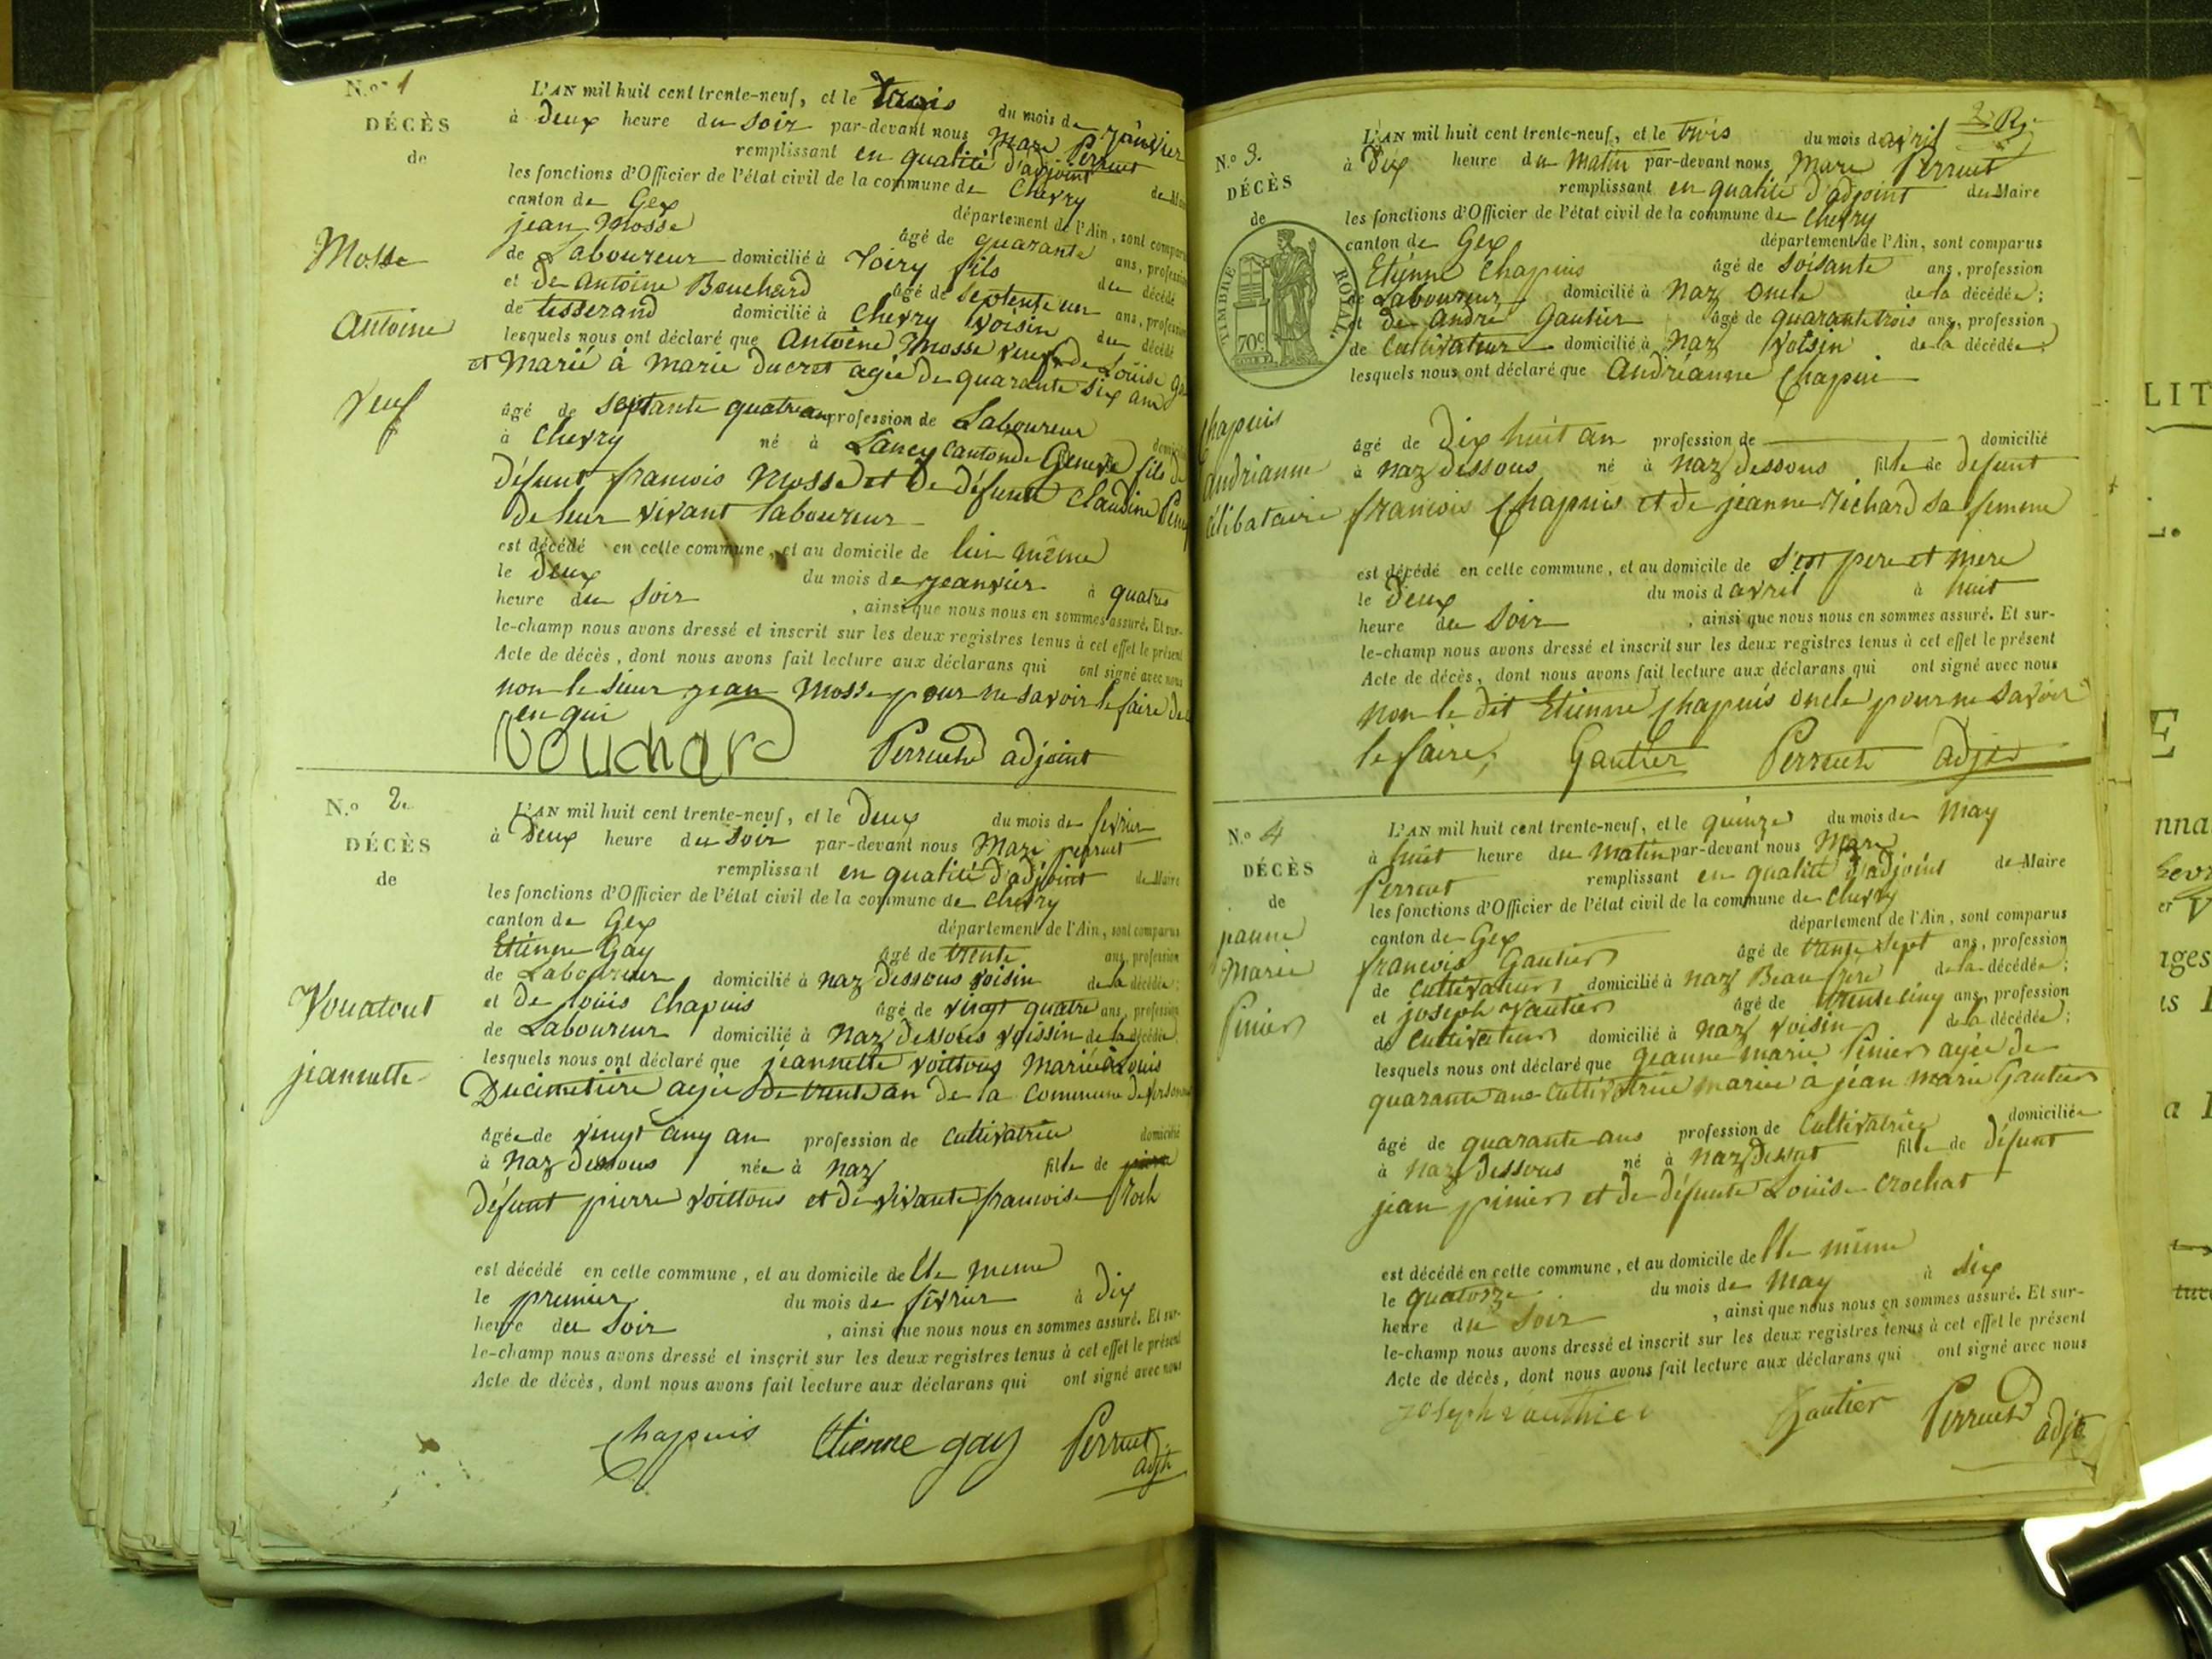 N.º 1
DÉCÈS
de
Mosse
Antoine
Veuf
L'AN mil huit cent trente-neuf, et le trois du mois de janvier
à deux heure du soir par-devant nous Marc Perrut
remplissant en qualité d'adjoint de
les fonctions d'Officier de l'état civil de la commune de Chevry
canton de Gex département de l'Ain, sont
jean Mosse âgé de quarante ans,
de Laboureur domicilié à Toiry fils du décédé
et de Antoine Bouchard âgé de septente un ans,
de tisserand domicilié à Chevry voisin du décédé
lesquels nous ont déclaré que Antoine Mosse veuf de Louise
et Marié à Marie ducret agée de quarante six ans
âgé de septante quatre an profession de Laboureur
à Chevry né à Lancy canton de Geneve fils de
défunt francois Mosse et de défunte Claudine
de leur vivant laboureur
est décédé en cette commune, et au domicile de lui même
le deux du mois de jeanvier à quatres
heure du soir, ainsi que nous nous en sommes assuré. Et sur-
le-champ nous avons dressé et inscrit sur les deux registres tenus à cet effet le présent
Acte de décès, dont nous avons fait lecture aux déclarans qui ont signé avec nous
non le sieur jean Mosse pour ne savoir le faire de
en qui
Bouchard Perrut adjoint
N.º 2.
DÉCÈS
de
Vouatout
jeannette
L'AN mil huit cent trente-neuf, et le deux du mois de fevrier
à deux heure du soir par-devant nous Marc perrut
remplissant en qualité d'adjoint de Maire
les fonctions d'Officier de l'état civil de la commune de Chevry
canton de Gex département de l'Ain, sont comparus
Etienne Gay âgé de trente ans, profession
de Laboureur domicilié à naz dessous voisin de la décédée;
et de loüis Chapuis âgé de vingt quatre ans, profession
de Laboureur domicilié à Naz dessous voissin de la décédée.
lesquels nous ont déclaré que jeannette voittous Mariée à Louis
Ducimetière agée de trente an de la Commune de
âgée de vingt cinq an profession de cultivatrice domicilié
à Naz dessous née à naz fille de
défunt pierre voittous et de vivante francoise Roch
est décédé en cette commune, et au domicile de Elle meme
le premier du mois de fevrier à dix
heure du soir, ainsi que nous nous en sommes assuré. Et sur-
le-champ nous avons dressé et inscrit sur les deux registres tenus à cet effet le présent
Acte de décès, dont nous avons fait lecture aux déclarans qui ont signé avec nous
chapuis Etienne gay Perrut
adjt
N.º 3.
DÉCÈS
de
TIMBRE ROYAL
70c
Chapuis
andrianne
célibataire
L'AN mil huit cent trente-neuf, et le trois du mois d avril
à dix heure du matin par-devant nous Marc Perrut
remplissant en qualité d'adjoint du Maire
les fonctions d'Officier de l'état civil de la commune de Chevry
canton de Gex département de l'Ain, sont comparus
Etienne Chapuis âgé de soisante ans, profession
de Laboureur domicilié à Naz oncle de la décédée;
et de andré Gautier âgé de quarante trois ans, profession
de Cultivateur domicilié à Naz voisin de la décédée;
lesquels nous ont déclaré que Andrianne Chapui
âgé de dix huit an profession de domicilié
à naz dessous né à naz dessous fille de defunt
francois Chapuis et de jeanne Richard sa femme
est décédé en cette commune, et au domicile de s'est pere et mere
le deux du mois d avril à huit
heure du soir, ainsi que nous nous en sommes assuré. Et sur-
le-champ nous avons dressé et inscrit sur les deux registres tenus à cet effet le présent
Acte de décès, dont nous avons fait lecture aux déclarans qui ont signé avec nous
non le dit Etienne Chapuis oncle pour ne savoir
le faire; Gautier Perrut adjt
N.º 4
DÉCÈS
de
jeanne
Marie
Pinier
L'AN mil huit cent trente-neuf, et le quinze du mois de May
à huit heure du matin par-devant nous Marc
Perrut remplissant en qualité d'adjoint de Maire
les fonctions d'Officier de l'état civil de la commune de Chevry
canton de Gex département de l'Ain, sont comparus
francois Gautier âgé de trante sept ans, profession
de cultivateur domicilié à naz Beau frere de la décédée;
et joseph vautier âgé de trente cinq ans, profession
de Cultivateur domicilié à naz voisin de la décédée;
lesquels nous ont déclaré que jeanne marie Pinier agée de
quarante ans cultivatrice mariée à jéan marie Gautier
âgé de quarante ans profession de Cultivatrice domiciliée
à naz dessous né à naz dessut fille de défunt
jean pinier et de défunte Louise crochat
est décédé en cette commune, et au domicile de Elle même
le quatorze du mois de May à six
heure du soir, ainsi que nous nous en sommes assuré. Et sur-
le-champ nous avons dressé et inscrit sur les deux registres tenus à cet effet le présent
Acte de décès, dont nous avons fait lecture aux déclarans qui ont signé avec nous
joseph vauthier Gautier Perrut
adjt